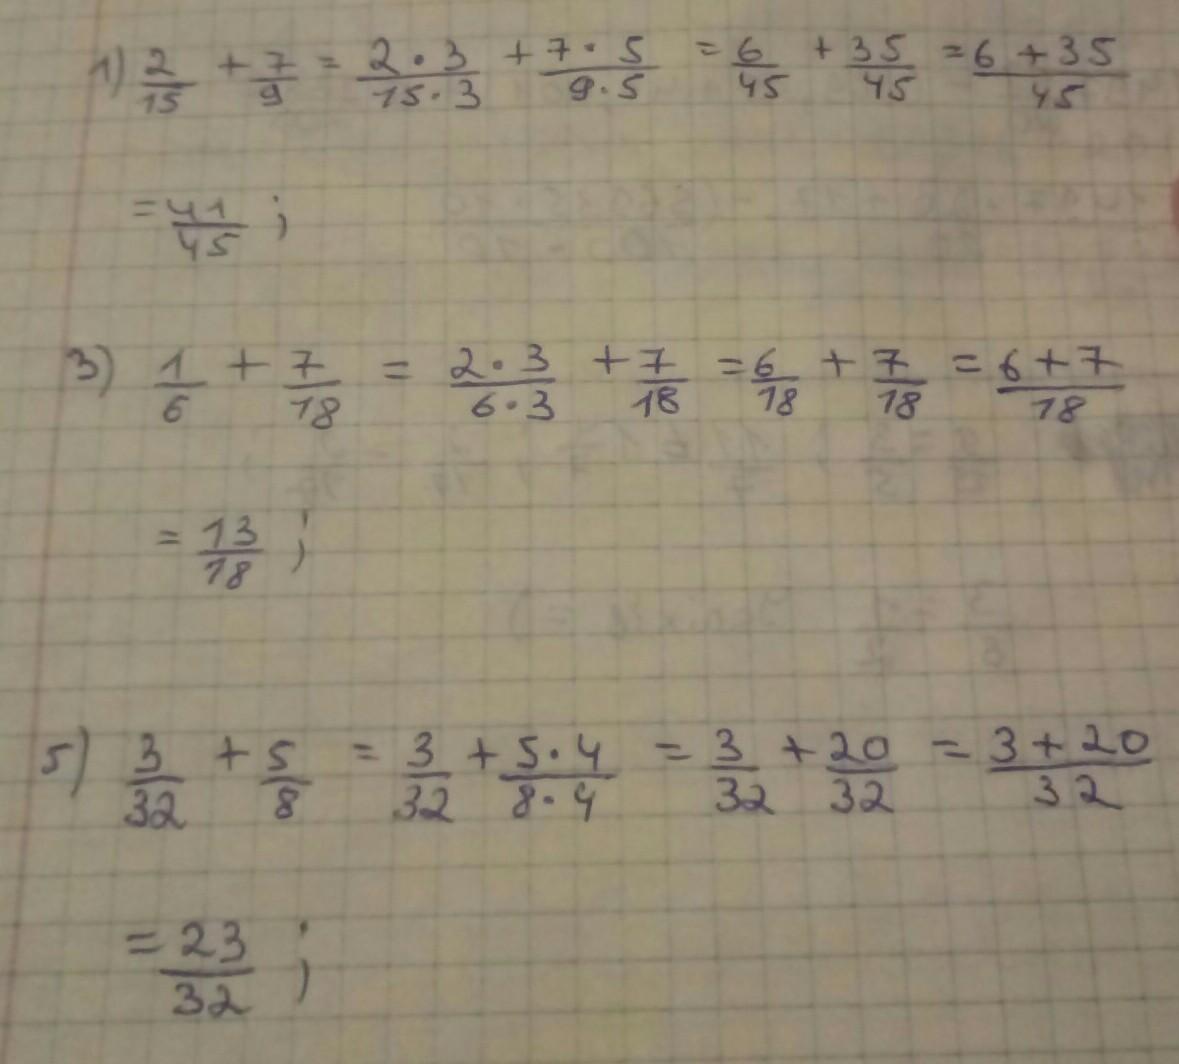 1) 2/15 + 7/9 = 2·3/15·3 + 7·5/9·5 = 6/45 + 35/45 = 6+35/45
= 41/45 ;
3) 1/6 + 7/18 = 2·3/6·3 + 7/18 = 6/18 + 7/18 = 6+7/18
= 13/18 ;
5) 3/32 + 5/8 = 3/32 + 5·4/8·4 = 3/32 + 20/32 = 3+20/32
= 23/32 ;